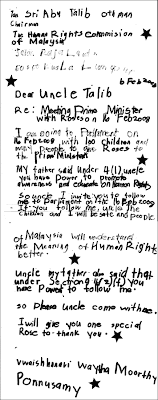 Tan Sri Abu Talib Othman
Chairman
The Human Rights Commission
of Malaysia
16 Feb 2008
Dear Uncle Talib
Re: Meeting Prime Minister
with Roses on 16 Feb 2008
I am going to Parliament on
16 Feb 2008 with 100 Children and
People to give Roses to
the Prime Minister
My father said Under 4(1) uncle
have Power to promote
awareness and educate on Human Rights
So Uncle I invite you to follow
me to Parliament on the 16 Feb 2008
If you follow me, uncle the
Children and I will be safe and people
of Malaysia will understand
the Meaning of Human Rights
better.
Uncle my father also said that
under Section 4(2)(f) you
have Power to follow me.
So Please uncle come with me.
I will give you one special
Rose to thank you.
Vwaishhnnavi Waytha Moorthy
Ponnusamy